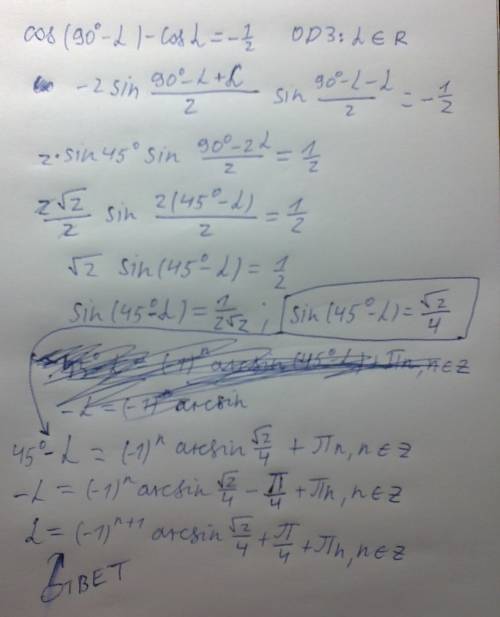 cos(90°-α)-cosα=-1/2 ОДЗ: α∈R
-2 sin (90°-α+α)/2 sin (90°-α-α)/2 = -1/2
2·sin45° sin (90°-2α)/2 = 1/2
2√2/2 sin 2(45°-α)/2 = 1/2
√2 sin(45°-α) = 1/2
sin(45°-α) = 1/2√2 ; sin(45°-α) = √2/4
-α = (-1)ⁿ arcsin
45°-α = (-1)ⁿ arcsin √2/4 + Πn, n∈Z
-α = (-1)ⁿ arcsin √2/4 - Π/4 + Πn, n∈Z
α = (-1)ⁿ⁺¹ arcsin √2/4 + Π/4 + Πn, n∈Z
ОТВЕТ